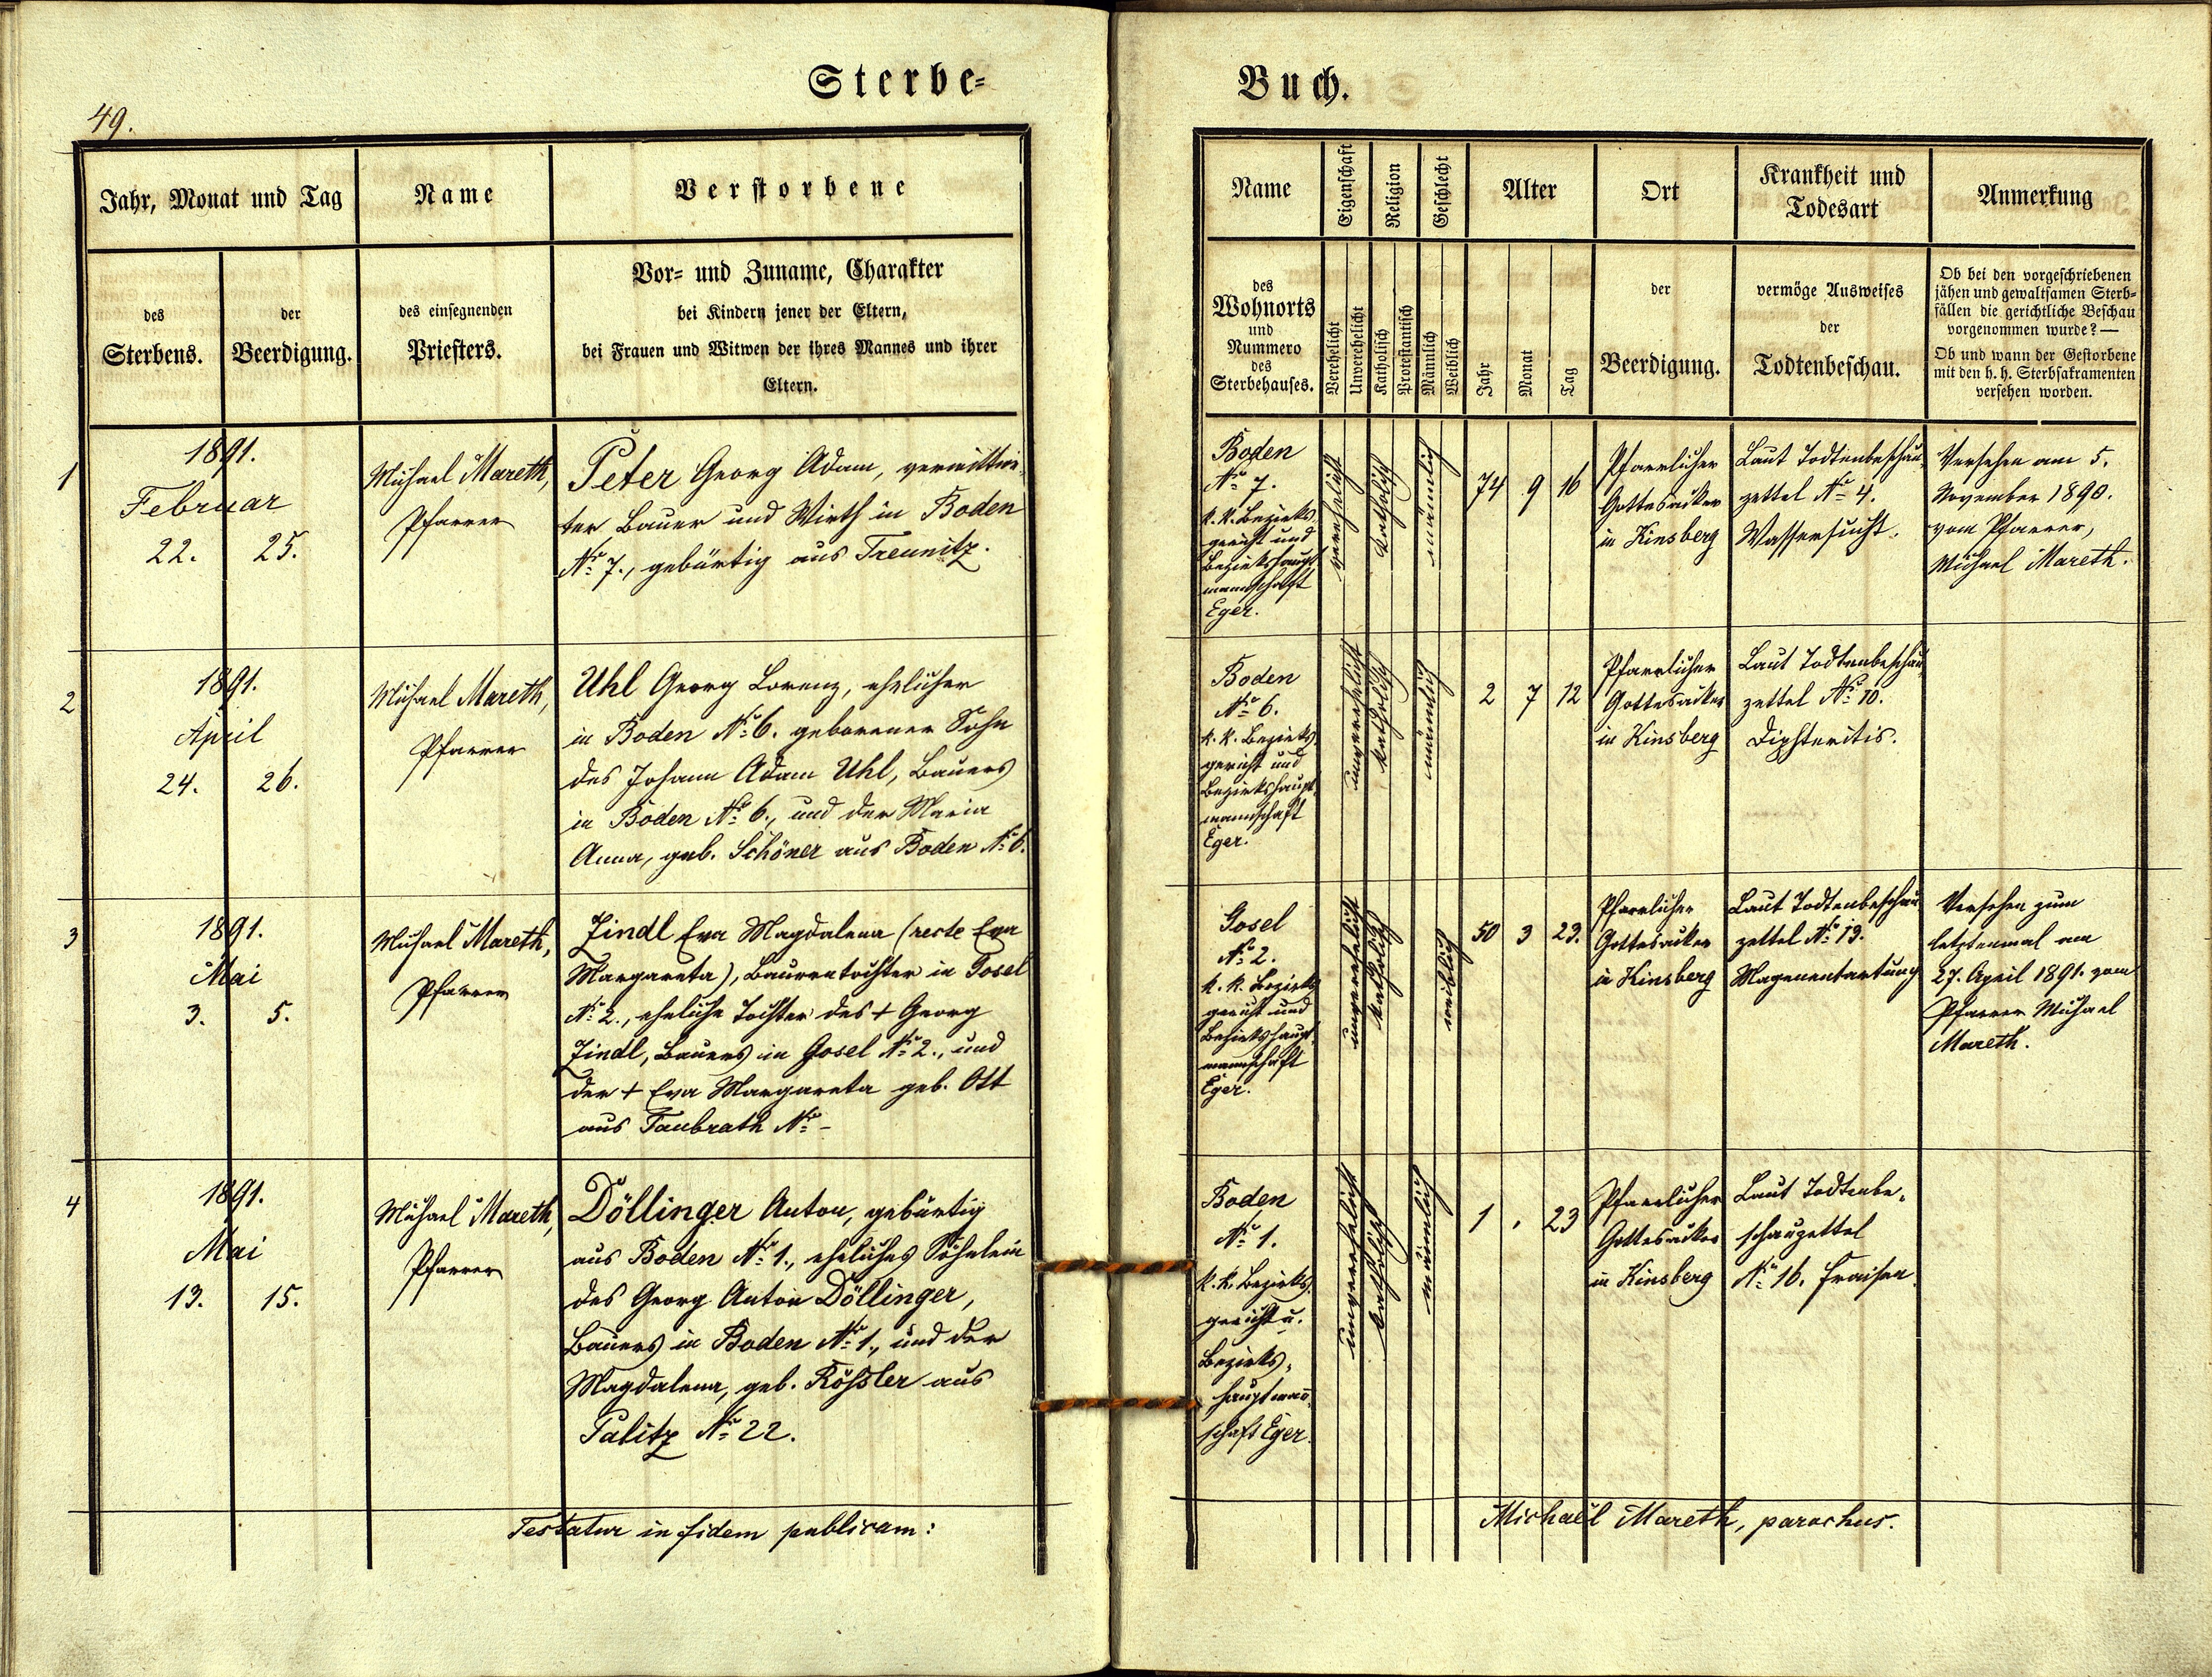 Sterbe=
49.
Jahr, Monat und Tag
Name
Verstorbene
des
Sterbens.
der
Beerdigung.
des einsegnenden
Priesters.
Vor= und Zuname, Charakter
bei Kindern jener der Eltern,
bei Frauen und Witwen der ihres Mannes und ihrer
Eltern.
1
1891.
Februar
22. 25.
Michael Mareth,
Pfarrer
Peter Georg Adam, verwittwe-
ter Bauer und Wirth in Boden
No 7., gebürtig aus Treunitz.
2
1891.
April
24. 26.
Michael Mareth,
Pfarrer
Uhl Georg Lorenz, ehelicher
in Boden No 6. geborener Sohn
des Johann Adam Uhl, Bauers
in Boden No 6., und der Maria
Anna, geb. Schöner aus Boden No 6.
3
1891.
Mai
3. 5.
Michael Mareth,
Pfarrer
Zindl Eva Magdalena (recte Eva
Margareta), Bauerntochter in Gosel
No 2., eheliche Tochter des + Georg
Zindl, Bauers in Gosel No 2., und
der + Eva Margareta geb. Ott
aus Taubrath No -
4
1891.
Mai
13. 15.
Michael Mareth,
Pfarrer
Döllinger Anton, gebürtig
aus Boden No 1., eheliches Söhnlein
des Georg Anton Döllinger,
Bauers in Boden No 1., und der
Magdalena, geb. Rößler aus
Palitz No 22.
Testatur in fidem publicam:
Buch.
Name
Eigenschaft
Religion
Geschlecht
Alter
Ort
Krankheit und
Todesart
Anmerkung
des
Wohnorts
und
Nummero
des
Sterbehauses.
Verehelicht
Unverehelicht
Katholisch
Protestantisch
Männlich
Weiblich
Jahr
Monat
Tag
der
Beerdigung.
vermöge Ausweises
der
Todtenbeschau.
Ob bei den vorgeschriebenen
jähen und gewaltsamen Sterb=
fällen die gerichtliche Beschau
vorgenommen wurde? —
Ob und wann der Gestorbene
mit den h. h. Sterbsakramenten
versehen worden.
Boden
No 7.
k. k. Bezirks-
gericht und
Bezirkshaupt-
mannschaft
Eger.
verehelicht
katholisch
männlich
74 9 16
Pfarrlicher
Gottesacker
in Kinsberg
Laut Todtenbeschau-
zettel No 4.
Wassersucht.
Versehen am 5.
November 1890.
vom Pfarrer,
Michael Mareth.
Boden
No 6.
k. k. Bezirks-
gericht und
Bezirkshaupt-
mannschaft
Eger.
unverehelicht
katholisch
männlich
2 7 12
Pfarrlicher
Gottesacker
in Kinsberg
Laut Todtenbeschau-
zettel No 10.
Diphteritis.
Gosel
No 2.
k. k. Bezirks-
gericht und
Bezirkshaupt-
mannschaft
Eger.
unverehelicht
katholisch
weiblich
50 3 23.
Pfarrlicher
Gottesacker
in Kinsberg
Laut Todtenbeschau-
zettel No 13.
Magenentartung
Versehen zum
letztenmal am
27. April 1891. vom
Pfarrer Michael
Mareth.
Boden
No 1.
k. k. Bezirks-
gericht u.
Bezirks-
hauptman̄-
schaft Eger.
unverehelicht
katholisch
männlich
1 . 23
Pfarrlicher
Gottesacker
in Kinsberg
Laut Todtenbe-
schauzettel
No 16. Fraisen.
Michaël Mareth, parochus.